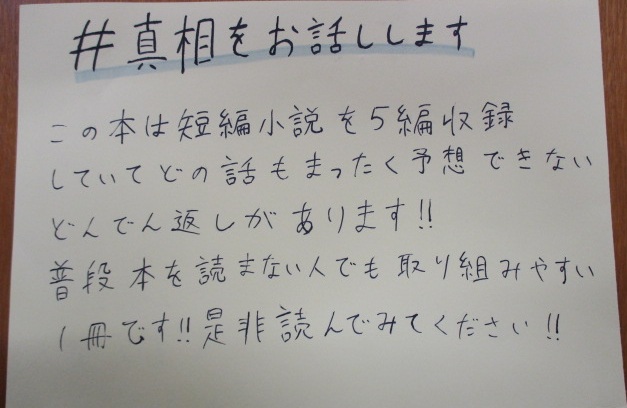 #真相をお話しします
この本は短編小説を5編収録
していてどの話もまったく予想できない
どんでん返しがあります!!
普段本を読まない人でも取り組みやすい
1冊です!!是非読んでみてください!!